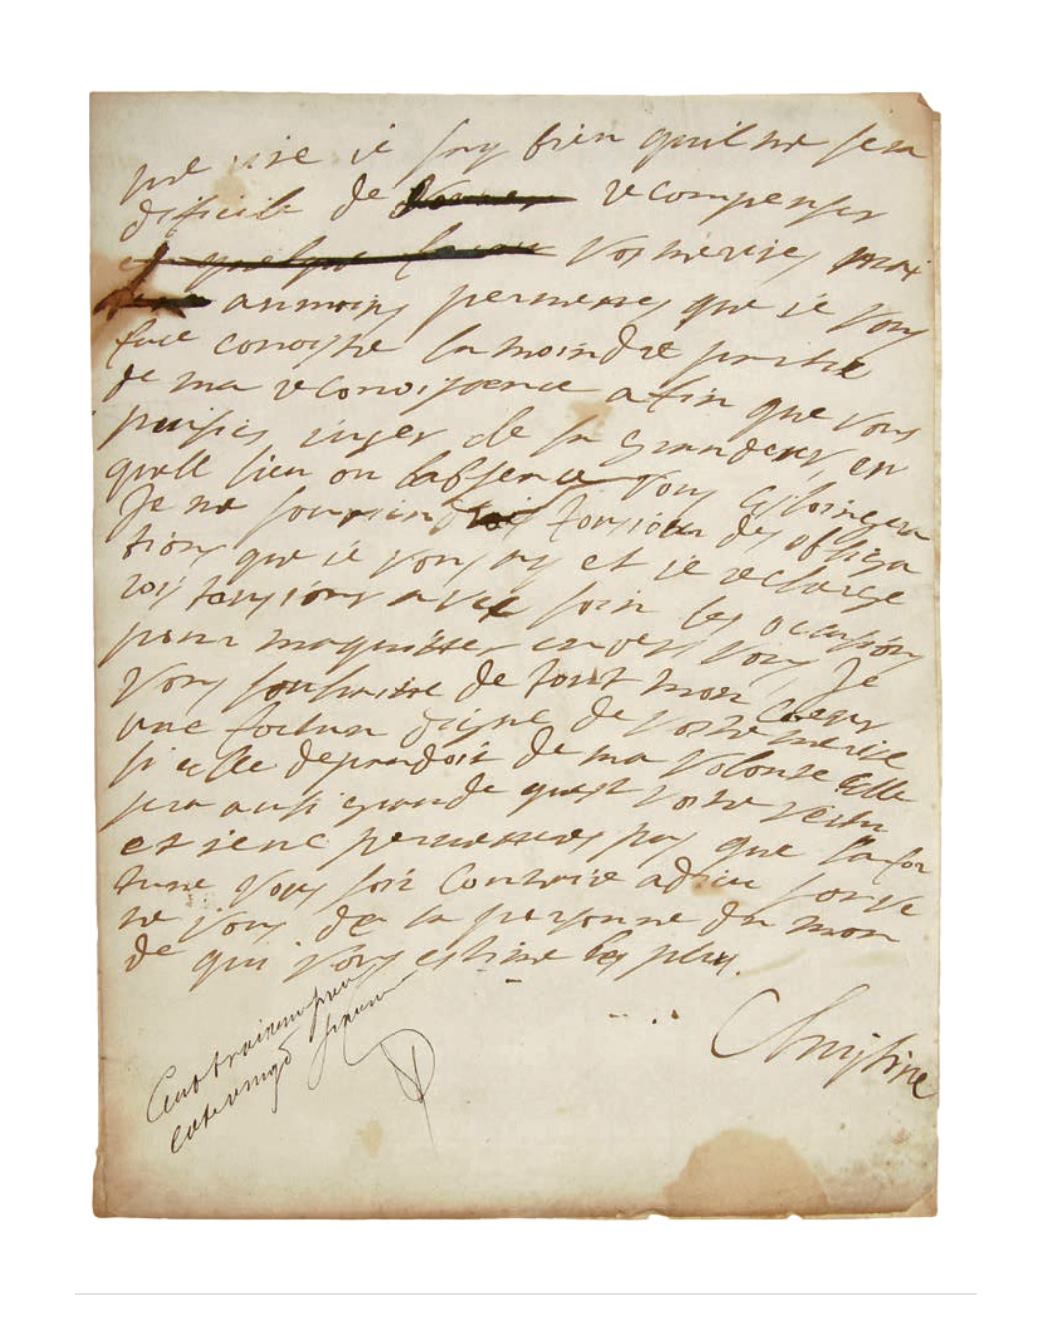 ie say bien quil me sera
dificile de recompenser
vos merites mai
aumoins permettes que ie vous
face conoistre la moindre partie
de ma reconoissence afin que vous
puissies iuger de sa grandeur, en
quelle lieu ou labsence vous esloingera
Je me souvien toujiour des obliga
tions que ie vous ay et ie recherce
rois tousiours avec soin les ocassions
pour maquitter envers vous Je
vous souhaitte de tout mon coeur
une fortune digne de vostre merite
si elle dependoit de ma volonte elle
sera ausi grande quest vostre vertu
et ie ne permetteres pas que la for
tune vous soit contraire adieu
vous de la personne du mon
de qui vous estime les plus.
Christine